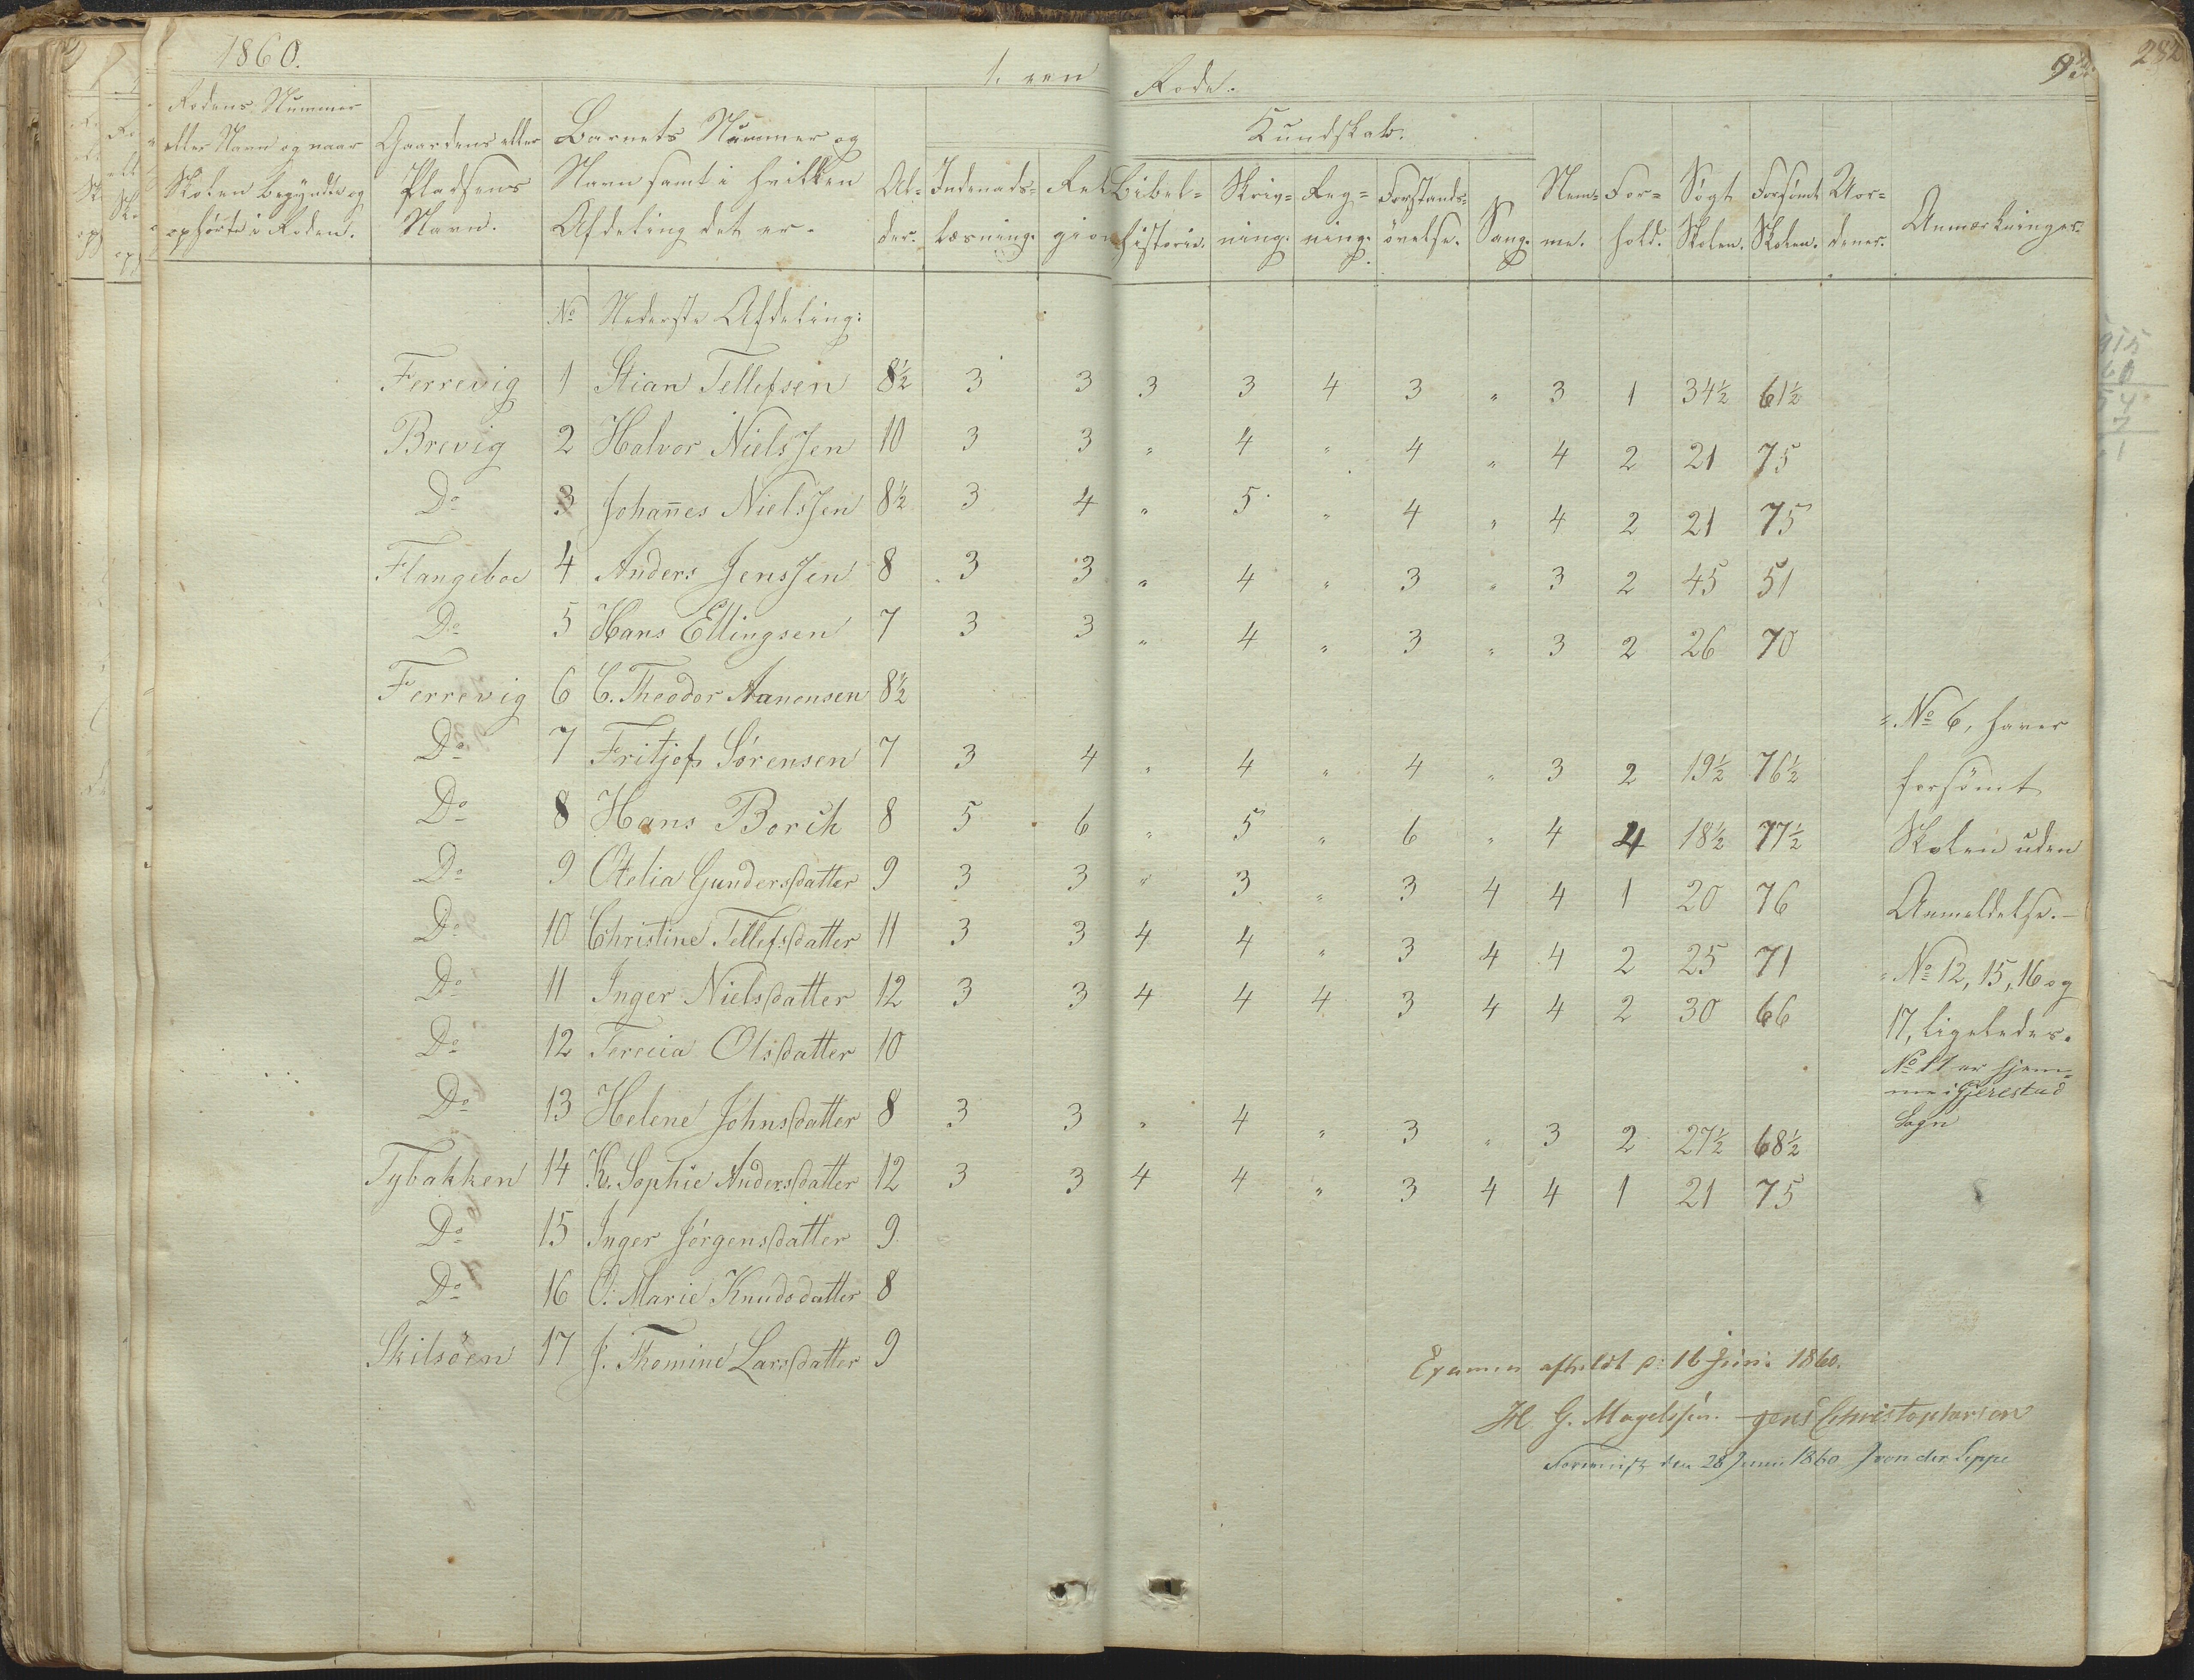 1860. 1. ren Rode. 93. 282
Rodens Nummer eller Navn og naar Skolen begyndte og ophørte i Roden. | Gaardens eller Pladsens Navn. | Barnets Nummer og Navn samt i hvilken Afdeling det er. | Al- der. | Indenads- læsning. | Reli gion | Bibel- historie. | Skriv- ning. | Reg- ning. | Forstands- øvelse. | Sang. | Nem- me. | For- hold. | Søgt Skolen. | Forsømt Skolen. | Uor- dener. | Anmærkninger.
Kundskab.
No Nederste Afdeling:
Ferrevig 1 Stian Tellefsen 8½ 3 3 3 3 4 3 " 3 1 34½ 61½
Brevig 2 Halvor Nielssen 10 3 3 " 4 " 4 " 4 2 21 75
Do 3 Johan̄es Nielssen 8½ 3 4 " 5 " 4 " 4 2 21 75
Flangeboe 4 Anders Jenssen 8 3 3 " 4 " 3 " 3 2 45 51
Do 5 Hans Ellingsen 7 3 3 " 4 " 3 " 3 2 26 70
Ferrevig 6 C. Theodor Aanonsen 8½
Do 7 Fritjof Sørensen 7 3 4 " 4 " 4 " 3 2 19½ 76½
Do 8 Hans Borch 8 5 6 " 5 " 6 " 4 4 18½ 77½
Do 9 Otelia Gundersdatter 9 3 3 " 3 " 3 4 4 1 20 76
Do 10 Christine Tellefsdatter 11 3 3 4 4 " 3 4 4 2 25 71
Do 11 Inger Nielsdatter 12 3 3 4 4 4 3 4 4 2 30 66
Do 12 Terecia Olsdatter 10
Do 13 Helene Johnsdatter 8 3 3 " 4 " 3 " 3 2 27½ 68½
Tybakken 14 K. Sophie Andersdatter 12 3 3 4 4 " 3 4 4 1 21 75
Do 15 Inger Jørgensdatter 9
Do 16 O. Marie Knudsdatter 8
Skilsøen 17 J. Thomine Larsdatter 9
" No 6, haver
forsømt
Skolen uden
Anmeldelse. –
" No 12, 15, 16 og
17, ligeledes.
No 17 er hjem-
me i Gjerestad
Sogn
Examen afholdt d: 16 Juni 1860.
H G. Magelssen. Jens Christophersen
den 28 Juni 1860 J von der Lippe